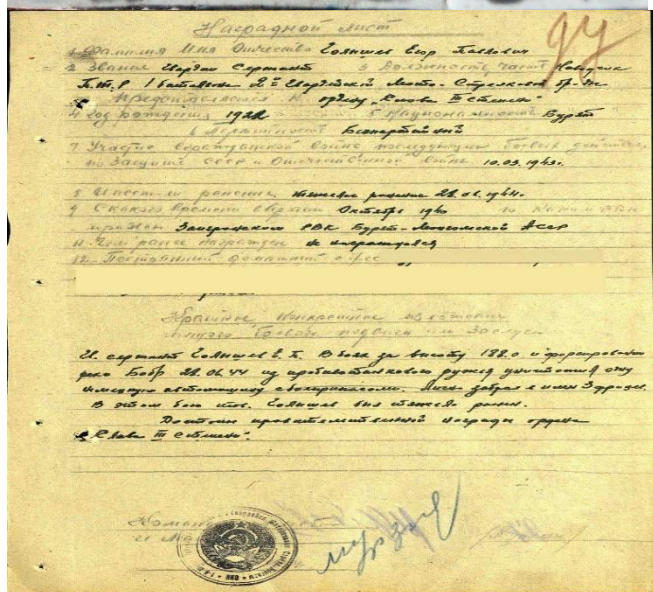 Наградной лист
97
1. Фамилия Имя Отчество Голышев Егор Павлович
2. Звание Гвардии Сержант 3 Должность, часть Наводчик
П.Т.Р 1 батальона 2й Гвардейской Мото-Стрелковой бр-ды
Представляется к ордену "Слава III Степени"
4. Год рождения 1922 5. Национальность Бурят
6 Партийность Беспартийный
7. Участие гражданской войне последующих боевых действиях
по защите СССР и Отечественной войне 10.03.1943г.
8 Имеет ли ранения тяжелое ранение 28.06.1944г.
9 С какого времени в Красной Октября 1940 10 Каким
призван Заиграевским РВК Бурят-Монгольской АССР
11. Чем ранее награжден не награждался
12. Постоянный домашний адрес
Краткое конкретное изложение
личного боевого подвига или заслуг
Гв. сержант Голышев Е.П. В боях за высоту 182.0 и форсировании
реки Бобр 28.06.44 из противотанкового ружья уничтожил одну
немецкую автомашину с боеприпасами. Лично забрал в плен 3 фрицев.
В этом бою тов. Голышев был тяжело ранен.
Достоин правительственной награды ордена
"Слава III Степени".